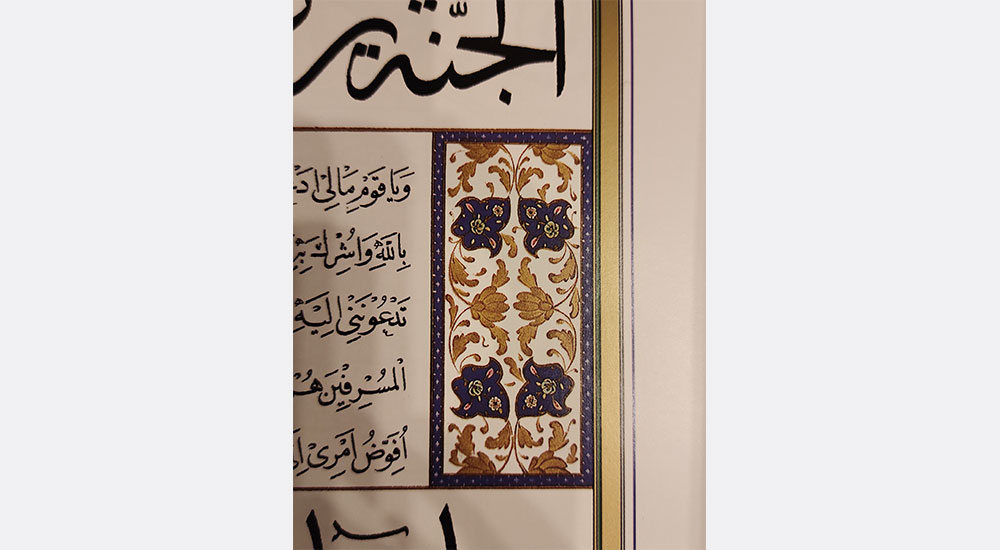 الجَنَّةَ يُر
وَيَا قَوْمِ مَا لِي اَدْعُ
بِاللّٰهِ وَاُشْرِكَ بِه
تَدْعُونَنِي اِلَيْهِ
الْمُسْرِفِينَ هُمْ
اُفَوِّضُ اَمْرِى اِلَى